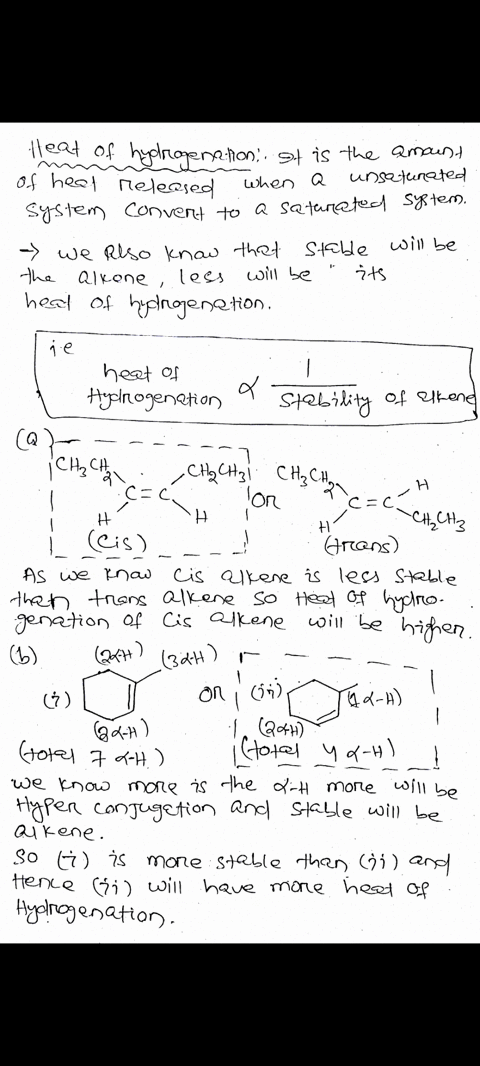 Heat of hydrogenation:. It is the amount
of heat released when a unsaturated
system convert to a saturated system.
→ we Also know that stable will be
the alkene, less will be " its
heat of hydrogenation.
i.e
heat of Hydrogenation ∝ 1 / Stability of alkene
(a)
CH₃CH₂ CH₂CH₃ or CH₃CH₂ H
C=C C=C
H H H CH₂CH₃
(Cis) (trans)
As we know cis alkene is less stable
than trans alkene so Heat of hydro-
genation of cis alkene will be higher.
(b) (2αH) (3αH)
(i) or (ii) (1α-H)
(2α-H) (2αH)
(total 7 α-H) (total 4 α-H)
we know more is the α-H more will be
Hyper conjugation and stable will be
alkene.
So (i) is more stable than (ii) and
Hence (ii) will have more heat of
Hydrogenation.